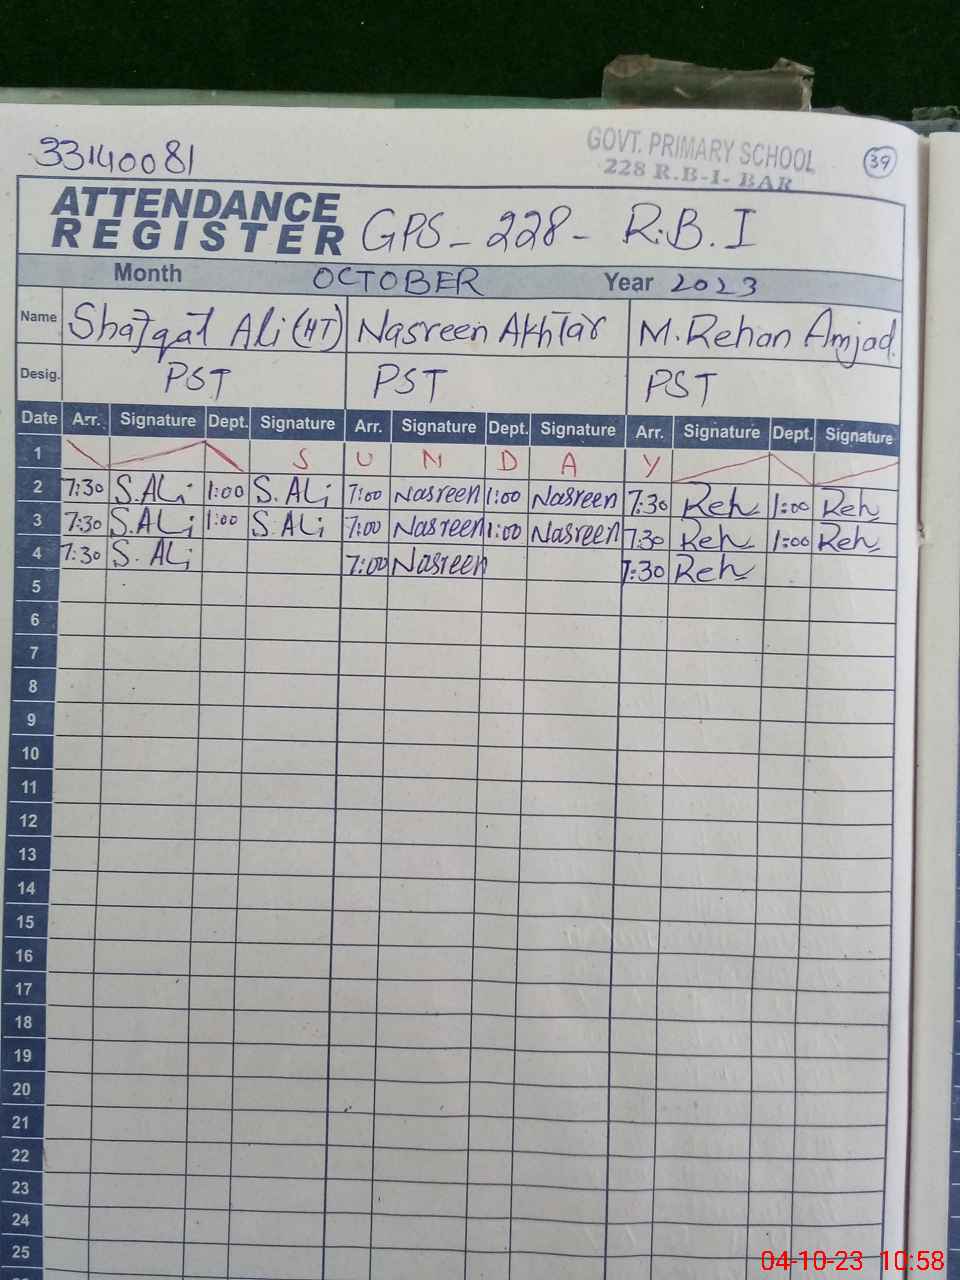 33140081
GOVT. PRIMARY SCHOOL
228 R.B-I- BAR
39
ATTENDANCE
REGISTER GPS - 228 - R.B.I
Month OCTOBER Year 2023
Name Shafqat Ali (HT) Nasreen Akhtar M. Rehan Amjad.
Desig. PST PST PST
Date Arr. Signature Dept. Signature Arr. Signature Dept. Signature Arr. Signature Dept. Signature
1 S U N D A Y
2 7:30 S.ALi 1:00 S.ALi 7:00 Nasreen 1:00 Nasreen 7:30 Reh 1:00 Reh
3 7:30 S.ALi 1:00 S.ALi 7:00 Nasreen 1:00 Nasreen 7:30 Reh 1:00 Reh
4 7:30 S.ALi 7:00 Nasreen 7:30 Reh
5
6
7
8
9
10
11
12
13
14
15
16
17
18
19
20
21
22
23
24
25
04-10-23 10:58